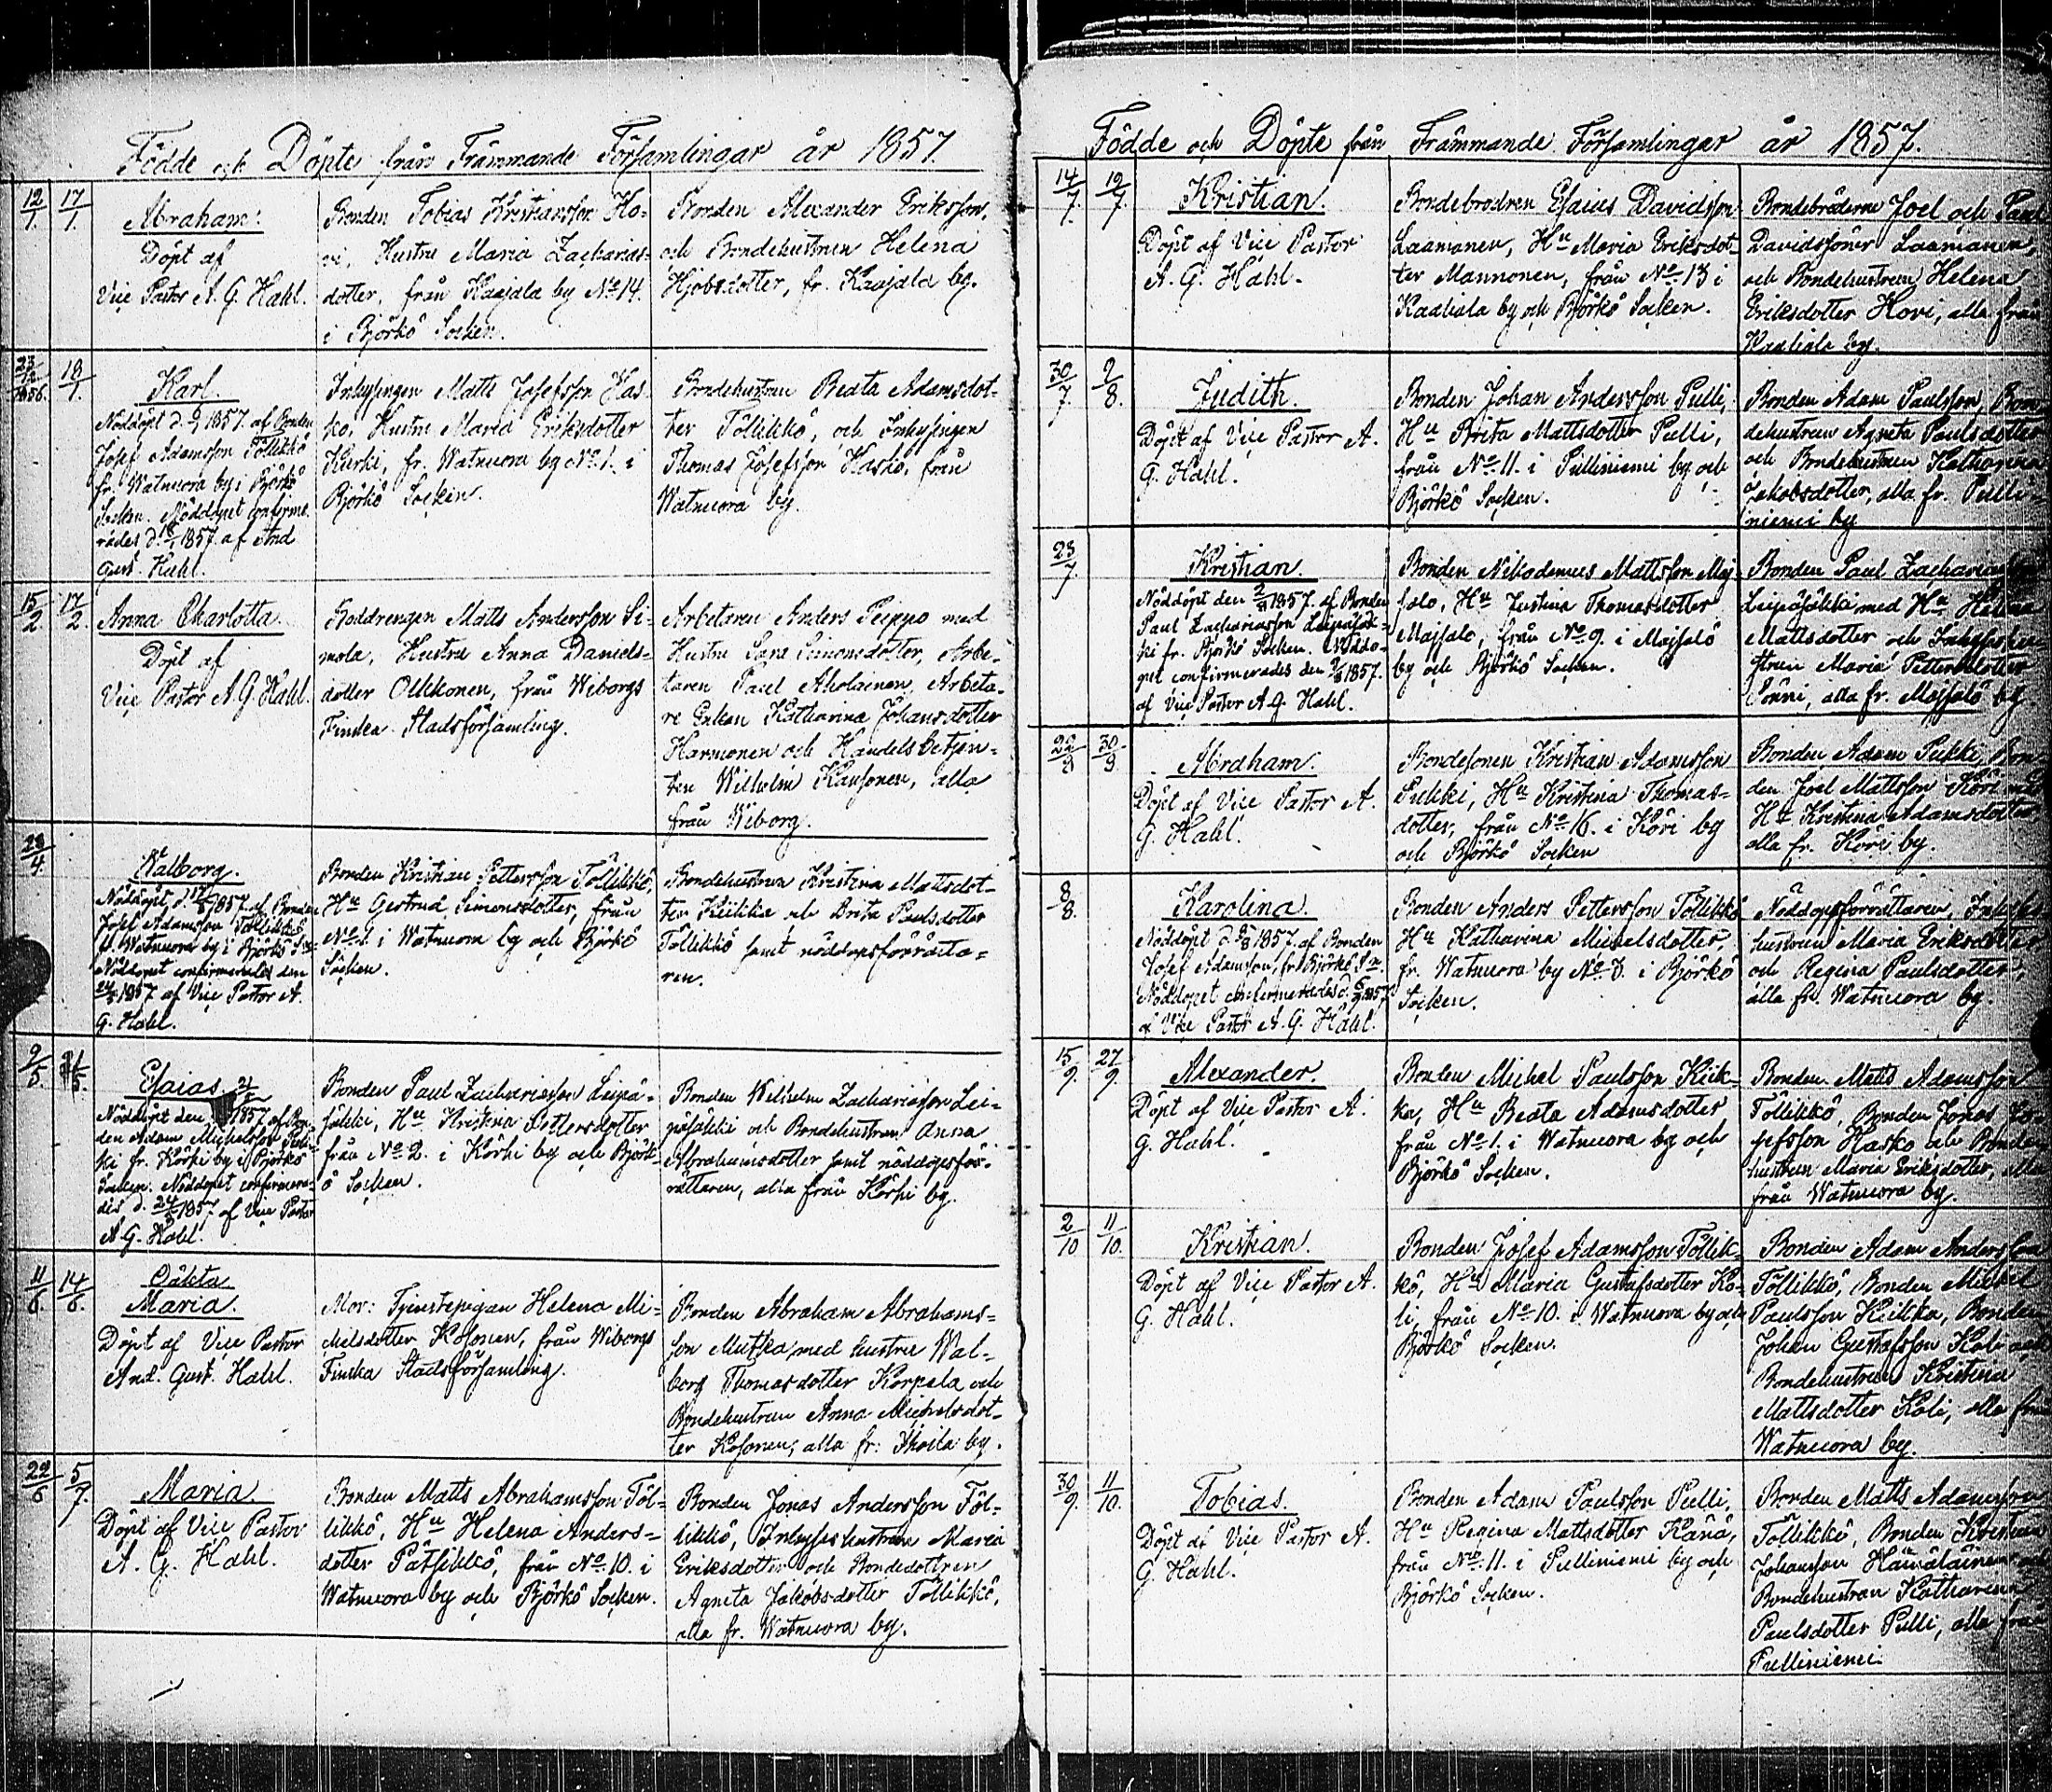 Födde och Döpte från Främmande Församlingar år 1857.
12/1. 17/1.
Abraham.
Döpt af
Vice Pastor A. G. Hahl.
Bonden Tobias Kristiansson Ho-
vi, Hustru Maria Zacharias-
dotter, från Kaajala by No 14.
i Björkö Socken.
Bonden Alexander Eriksson,
och Bondehustrun Helena
Hjobsdotter, fr. Kaajala by.
23/12 1856. 18/1.
Karl.
Nöddöpt d. 1857. af Bonden
Josef Adamsson Töllikkö
fr. Watnuora by i Björkö
Socken. Nöddopet confirme-
rades d. 18/1 1857. af And.
Gust. Hahl.
Inhysingen Matts Josefsson Has-
ko, Hustru Maria Eriksdotter
Kurki, fr. Watnuora by No 1. i
Björkö Socken.
Bondehustrun Beata Adamsdot-
ter Töllikkö, och Inhysingen
Thomas Josefsson Hasko, från
Watnuora by.
15/2. 17/2.
Anna Charlotta
Döpt af
Vice Pastor A. G. Hahl.
Matts Andersson Si-
mola, Hustru Anna Daniels-
dotter Ollikonen, från Wiborgs
Finska Stadsförsamling.
Arbetaren Anders Peippo med
Hustru Sara Simonsdotter, Arbe-
taren Paul Aholainen, Arbeta-
re Enkan Katharina Johansdotter
Harmonen och Handelsbetjen-
ten Wilhelm Kausonen, alla
från Wiborg.
28/4.
Walborg.
Nöddöpt d. 1857. af Bonden
Josef Adamsson Töllikkö
fr. Watnuora by i Björkö
Nöddopet confirmerades den
24/5 1857 af Vice Pastor A.
G. Hahl.
Bonden Kristian Pettersson Töllikkö,
Hu Gertrud Simonsdotter, från
No 1. i Watnuora by och Björkö
Socken.
Bondehustrun Kristina Mattsdot-
ter Kiikka och Brita Paulsdotter
Töllikkö samt nöddopsförrätta-
ren.
9/5. /5.
Esaias.
Nöddöpt den 21/5 1857 af Bon-
den Adam Michelsson
fr. Körki by i Björkö
Socken. Nöddopet confirmera-
des d. 24/5 1857. af Vice Pastor
A. G. Hahl.
Bonden Paul Zachariasson Leipä-
jäkki, Hu Kristina Pettersdotter
från No 2. i Körki by och Björk-
ö Socken.
Bonden Wilhelm Zachariasson Lei-
päjäkki och Bondehustrun Anna
Abrahamsdotter samt nöddopsför-
rättaren, alla från Körki by.
11/6. 14/6.
Oäkta
Maria.
Döpt af Vice Pastor
And. Gust. Hahl.
Mor: Tjenstepigan Helena Mi-
chelsdotter Kosonen, från Wiborgs
Finska Stadsförsamling.
Bonden Abraham Abrahams-
son Mutka med hustru Wal-
borg Thomasdotter Korpela och
Bondehustrun Anna Michelsdot-
ter Kosonen, alla fr. by.
22/6 5/7.
Maria.
Döpt af Vice Pastor
A. G. Hahl.
Bonden Matts Abrahamsson Töl-
likkö, Hu Helena Anders-
dotter Pätsikkö, från No 10. i
Watnuora by och Björkö Socken.
Bonden Jonas Andersson Töl-
likkö, Inhysingshustrun Maria
Eriksdotter och Bondedottren
Agneta Jakobsdotter Töllikkö,
alla fr. Watnuora by.
Födde och Döpte från Främmande Församlingar år 1857.
14/7. 19/7.
Kristian.
Döpt af Vice Pastor
A. G. Hahl.
Bondebrodren Esaias Davidsson
Laamanen, Hu Maria Eriksdot-
ter Mannonen, från No 13 i
Kaaliala by och Björkö Socken.
Bondebröderne Joel och Paul
Davidssöner Laamanen,
och Bondehustrun Helena
Eriksdotter Hovi, alla från
Kaaliala by.
30/7 2/8.
Judith.
Döpt af Vice Pastor A.
G. Hahl.
Bonden Johan Andersson Pulli,
Hu Brita Mattsdotter Pulli,
från No 11. i Pulliniemi by och
Björkö Socken.
Bonden Adam Paulsson, Bon-
dehustrun Agneta Paulsdotter
och Bondehustrun Katharina
Jakobsdotter, alla fr. Pulli-
niemi by
23/7.
Kristian.
Nöddöpt den 2/8 1857. af Bonden
Paul Zachariasson Leipäjäk-
ki fr. Björkö Socken. Nöddo-
pet confirmerades den 9/8 1857.
af Vice Pastor A. G. Hahl.
Bonden Nikodemus Mattsson Maj-
salo, Hu Justina Thomasdotter
Majsalo, från No 9. i Majsalö
by och Björkö Socken.
Bonden Paul Zachariasson
Leipäjäkki med Hu Helena
Mattsdotter och
Maria Pettersdotter
alla fr. Majsalö by
22/8 30/8
Abraham.
Döpt af Vice Pastor A.
G. Hahl.
Bondesonen Kristian Adamsson
Pukki, Hu Kristina Thomas-
dotter, från No 16. i Köri by
och Björkö Socken
Bonden Adam Pukki, Bon-
den Joel Mattsson Köri med
Hu Kristina Adamsdotter,
alla fr. Köri by.
8/8.
Karolina.
Nöddöpt d. 1857. af Bonden
Josef Adamsson, fr. Björkö Sn.
Nöddopet confirmerades d. 1857
af Vice Pastor A. G. Hahl.
Bonden Anders Pettersson Töllikkö
Hu Katharina Michelsdotter,
fr. Watnuora by No 8. i Björkö
Socken.
Nöddopsförrättaren,
hustrun Maria Eriksdotter
och Regina Paulsdotter,
alla fr. Watnuora by.
15/9. 27/9.
Alexander.
Döpt af Vice Pastor A.
G. Hahl.
Bonden Michel Paulsson Kiik-
ka, Hu Beata Adamsdotter
från No 1. i Watnuora by och
Björkö Socken.
Bonden Matts Adamsson
Töllikkö, Bonden Jonas Jo-
sefsson Hasko och Bonde-
hustrun Maria Eriksdotter, alla
från Watnuora by.
2/10 11/10.
Kristian.
Döpt af Vice Pastor A.
G. Hahl.
Bonden Josef Adamsson Töllik-
kö, Hu Maria Gustafsdotter Ko-
li, från No 10. i Watnuora by och
Björkö Socken.
Bonden Adam Andersson
Töllikkö, Bonden Michel
Paulsson Kiikka, Bonden
Johan Gustafsson Koli och
Bondehustrun Kristina
Mattsdotter Koli, alla från
Watnuora by.
30/9. 11/10.
Tobias.
Döpt af Vice Pastor A.
G. Hahl.
Bonden Adam Paulsson Pulli,
Hu Regina Mattsdotter Känä,
från No 11. i Pulliniemi by och
Björkö Socken.
Bonden Matts Adamsson
Töllikkö, Bonden Kristian
Johansson Hämäläinen och
Bondehustrun Katharina
Paulsdotter Pulli, alla från
Pulliniemi.